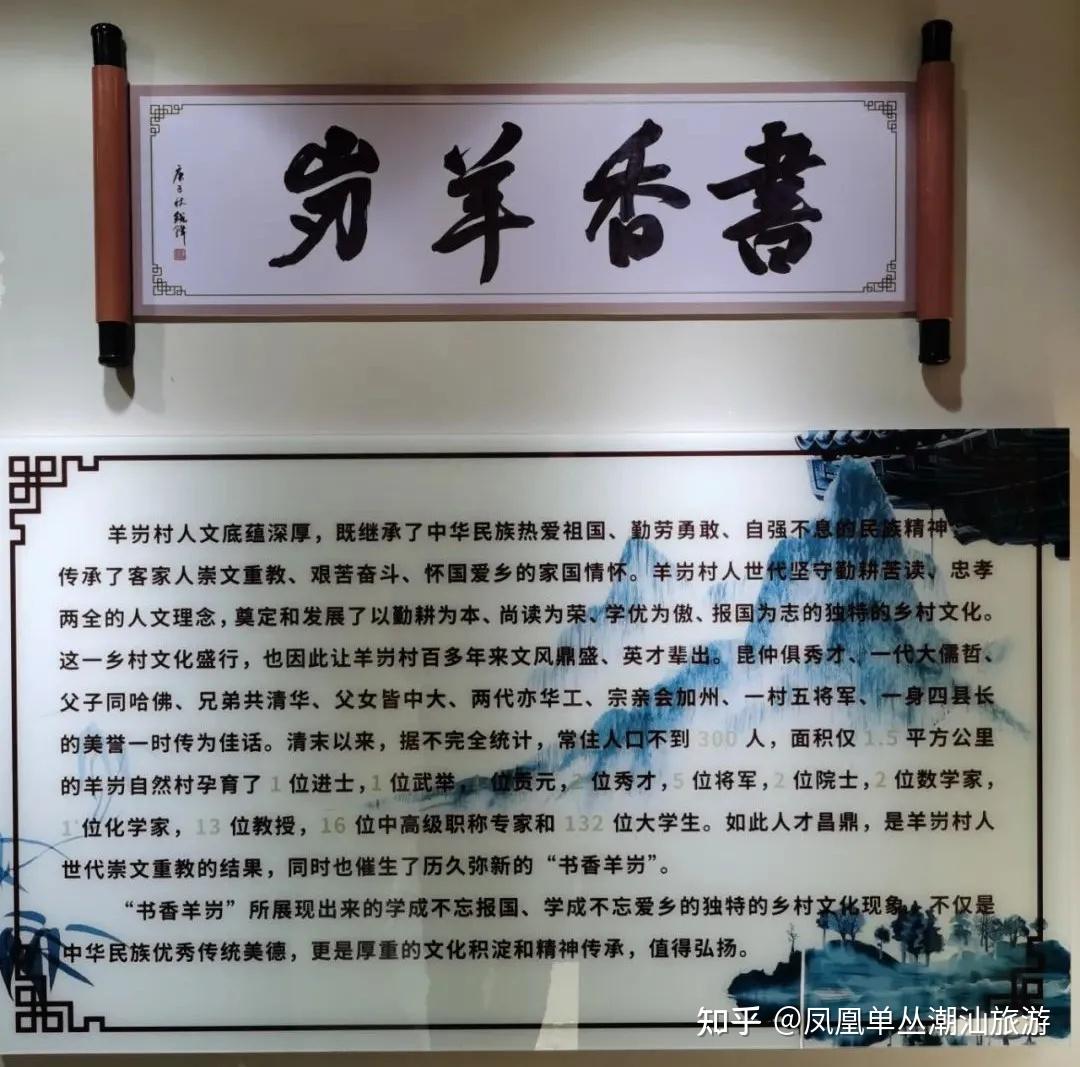 書香羊岃
庚子秋
羊岃村人文底蕴深厚，既继承了中华民族热爱祖国、勤劳勇敢、自强不息的民族精神
传承了客家人崇文重教、艰苦奋斗、怀国爱乡的家国情怀。羊岃村人世代坚守勤耕苦读、忠孝
两全的人文理念，奠定和发展了以勤耕为本、尚读为荣、学优为傲、报国为志的独特的乡村文化。
这一乡村文化盛行，也因此让羊岃村百多年来文风鼎盛、英才辈出。昆仲俱秀才、一代大儒哲、
父子同哈佛、兄弟共清华、父女皆中大、两代亦华工、宗亲会加州、一村五将军、一身四县长
的美誉一时传为佳话。清末以来，据不完全统计，常住人口不到 300 人，面积仅 1.5 平方公里
的羊岃自然村孕育了 1 位进士，1 位武举，1 位贡元，2 位秀才，5 位将军，2 位院士，2 位数学家，
1 位化学家，13 位教授，16 位中高级职称专家和 132 位大学生。如此人才昌鼎，是羊岃村人
世代崇文重教的结果，同时也催生了历久弥新的“书香羊岃”。
“书香羊岃”所展现出来的学成不忘报国、学成不忘爱乡的独特的乡村文化现象，不仅是
中华民族优秀传统美德，更是厚重的文化积淀和精神传承，值得弘扬。
知乎 @凤凰单丛潮汕旅游